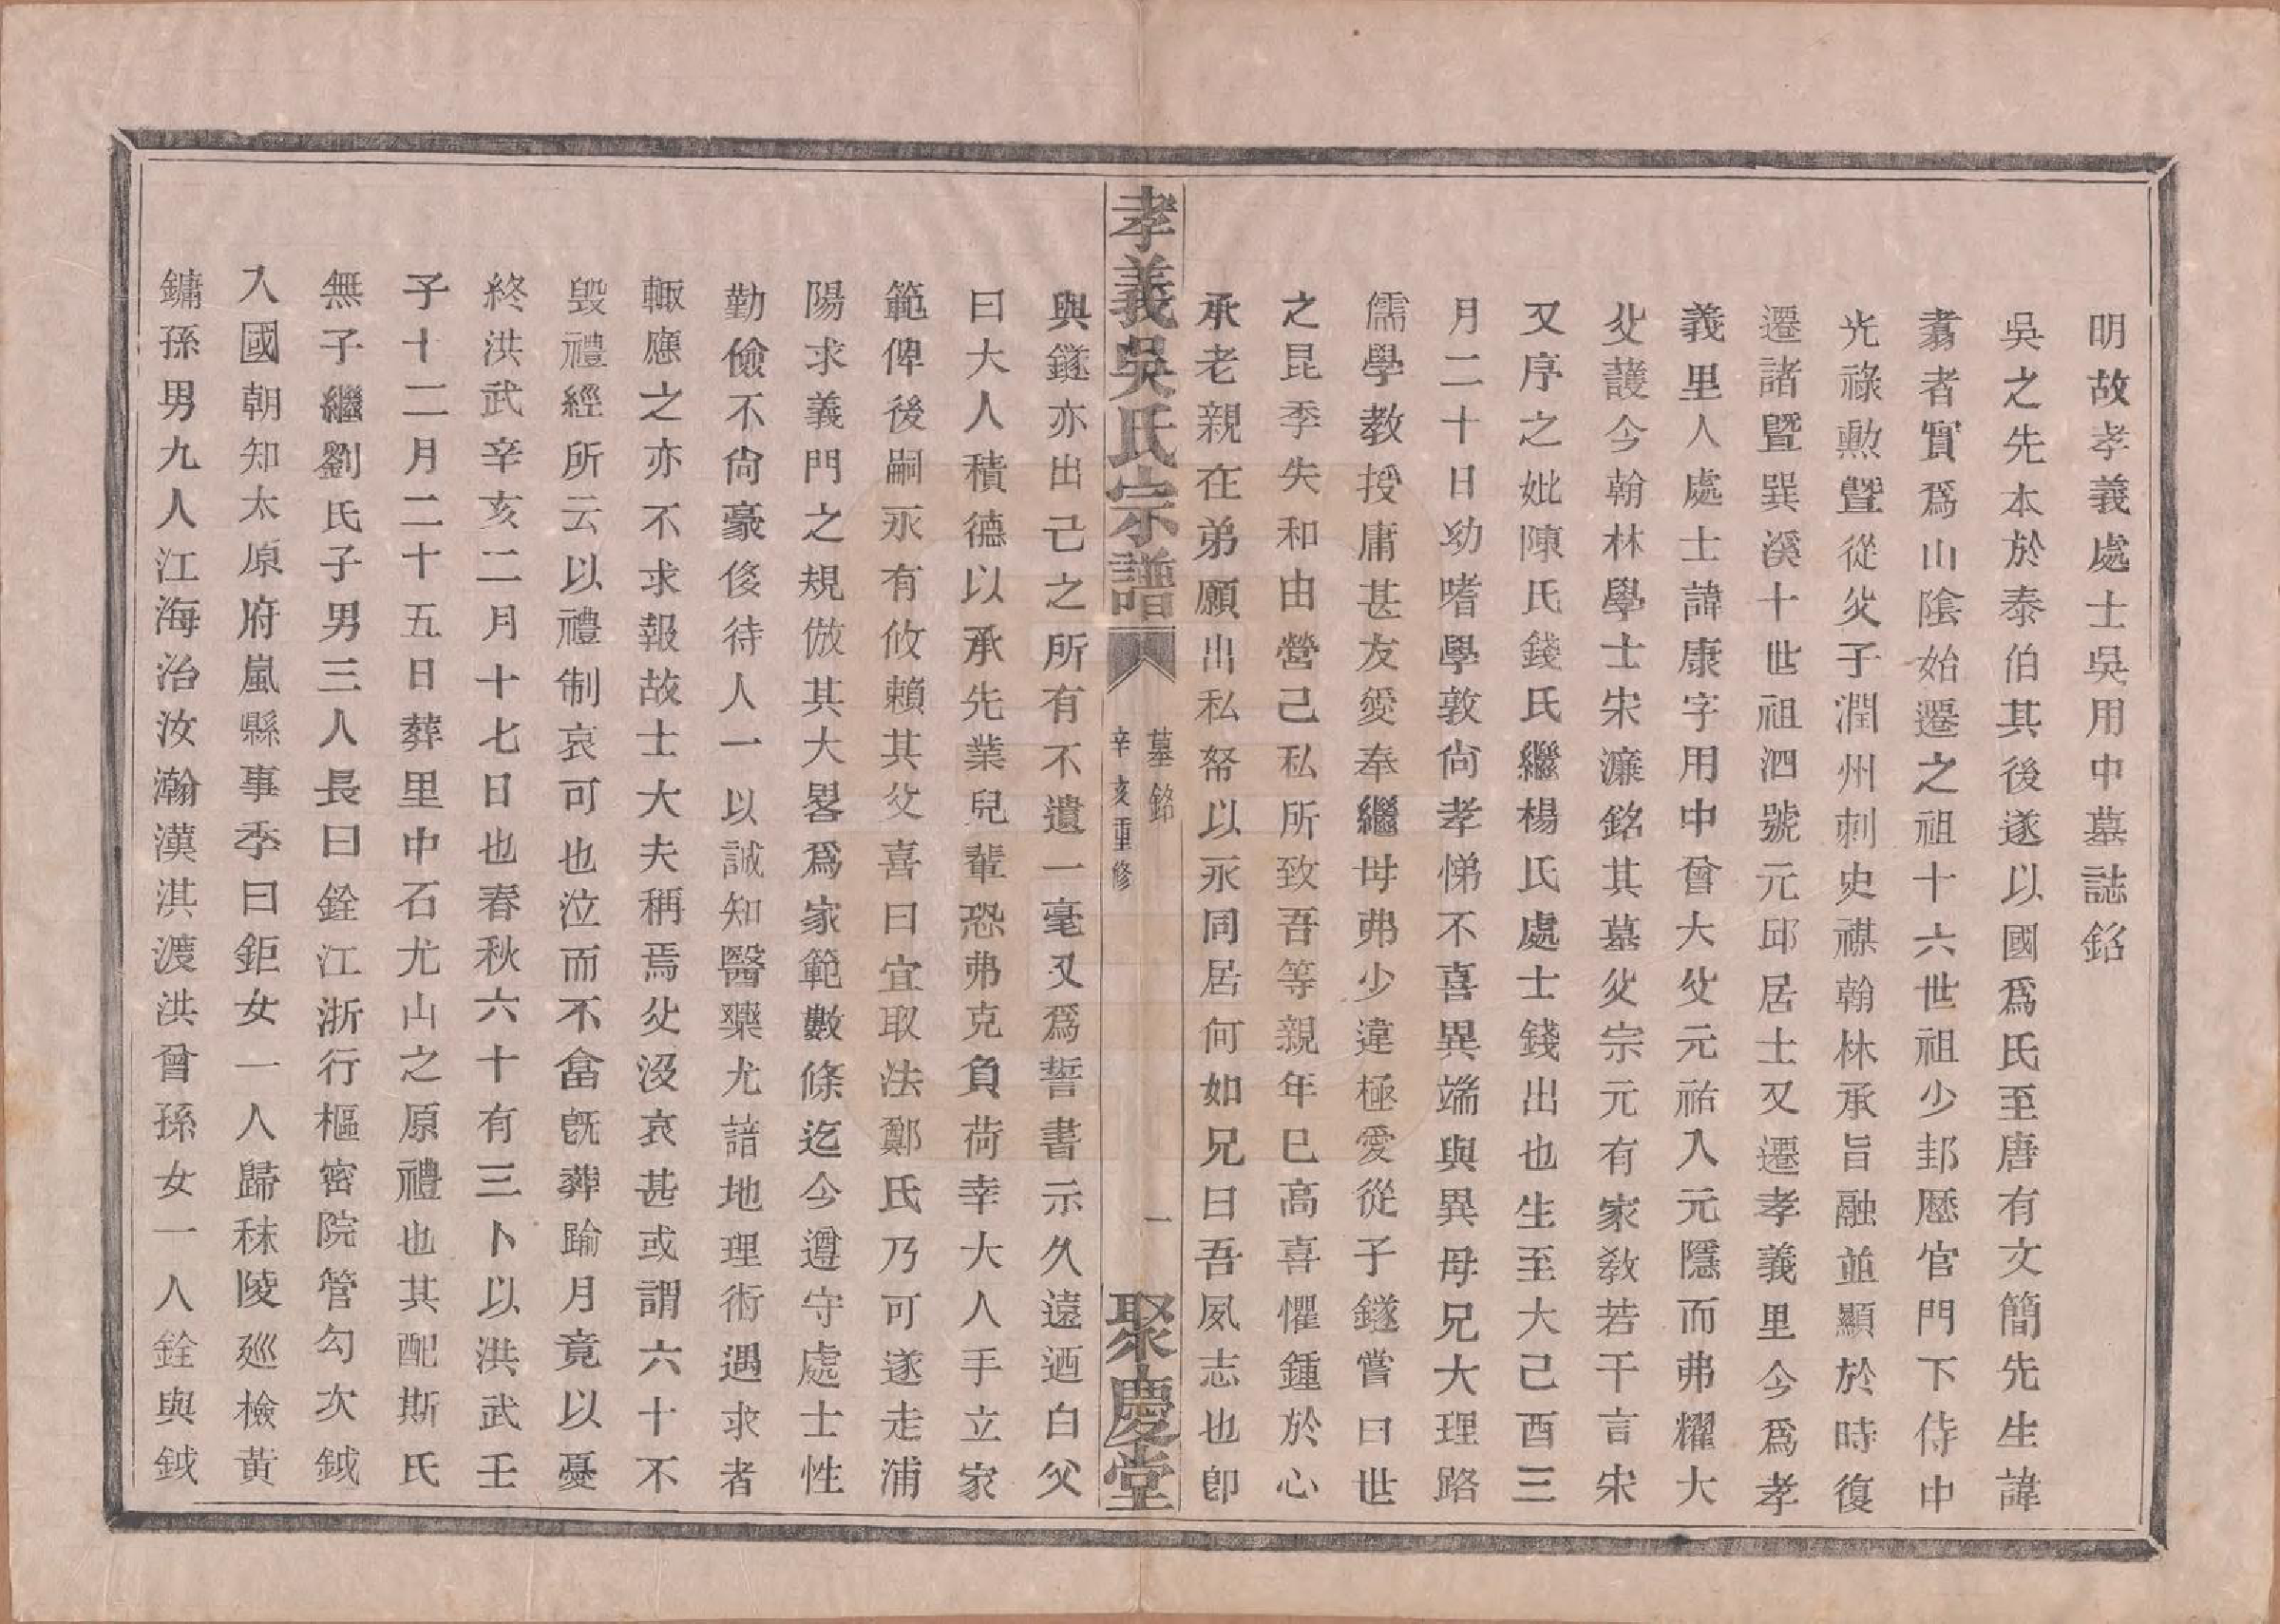 明故孝義處士吳用中墓誌銘
吳之先本於泰伯其後遂以國爲氏至唐有文簡先生諱
翥者實爲山陰始遷之祖十六世祖少邽歷官門下侍中
光祿勲曁從父子潤州刺史禖翰林承旨融並顯於時復
遷諸暨巽溪十世祖泗號元邱居士又遷孝義里今爲孝
義里人處士諱康字用中曾大父元祐入元隱而弗耀大
父護今翰林學士宋濂銘其墓父宗元有家敎若干言宋
又序之妣陳氏錢氏繼楊氏處士錢出也生至大己酉三
月二十日幼嗜學敦尙孝悌不喜異端與異母兄大理路
儒學敎授庸甚友愛奉繼母弗少違極愛從子鐩嘗曰世
之昆季失和由營己私所致吾等親年巳高喜懼鍾於心
承老親在弟願出私帑以永同居何如兄曰吾夙志也卽
孝義吳氏宗譜
墓銘
辛亥重修
一
聚慶堂
與鐩亦出己之所有不遺一毫又爲誓書示久遠迺白父
曰大人積德以承先業兒輩恐弗克負荷幸大人手立家
範俾後嗣永有攸賴其父喜曰宜取法鄭氏乃可遂走浦
陽求義門之規倣其大畧爲家範數條迄今遵守處士性
勤儉不尙豪侈待人一以誠知醫藥尤諳地理術遇求者
輙應之亦不求報故士大夫稱焉父沒哀甚或謂六十不
毀禮經所云以禮制哀可也泣而不畣旣葬踰月竟以憂
終洪武辛亥二月十七日也春秋六十有三卜以洪武壬
子十二月二十五日葬里中石尤山之原禮也其配斯氏
無子繼劉氏子男三人長曰銓江浙行樞密院管勾次鉞
入國朝知太原府嵐縣事季曰鉅女一人歸秣陵廵檢黃
鏞孫男九人江海治汝瀚漢淇渡洪曾孫女一人銓與鉞